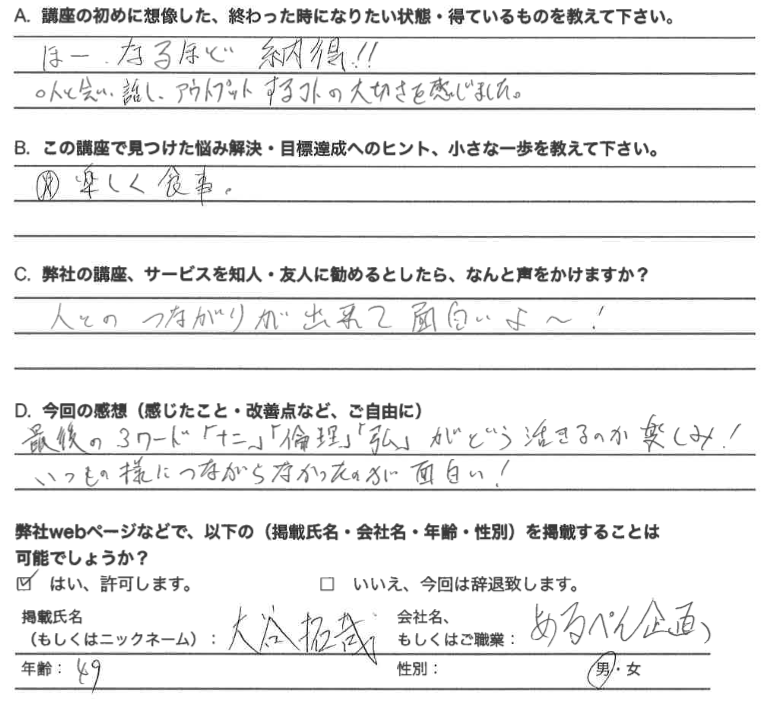 A. 講座の初めに想像した、終わった時になりたい状態・得ているものを教えて下さい。
ほー、なるほど 納得!!
○人と会い、話し、アウトプットするコトの大切さを感じました。
B. この講座で見つけた悩み解決・目標達成へのヒント、小さな一歩を教えて下さい。
楽しく食事。
C. 弊社の講座、サービスを知人・友人に勧めるとしたら、なんと声をかけますか？
人とのつながりが出来て面白いよ～!
D. 今回の感想（感じたこと・改善点など、ご自由に）
最後の3ワード「十二」「倫理」「弘」がどう活きるのか楽しみ!
いつもの様につながらなかったのが面白い!
弊社webページなどで、以下の（掲載氏名・会社名・年齢・性別）を掲載することは
可能でしょうか？
☑ はい、許可します。 □ いいえ、今回は辞退致します。
掲載氏名
（もしくはニックネーム）： 大谷拓哉
会社名、
もしくはご職業： あるぺん企画
年齢： 49 性別： 男・女